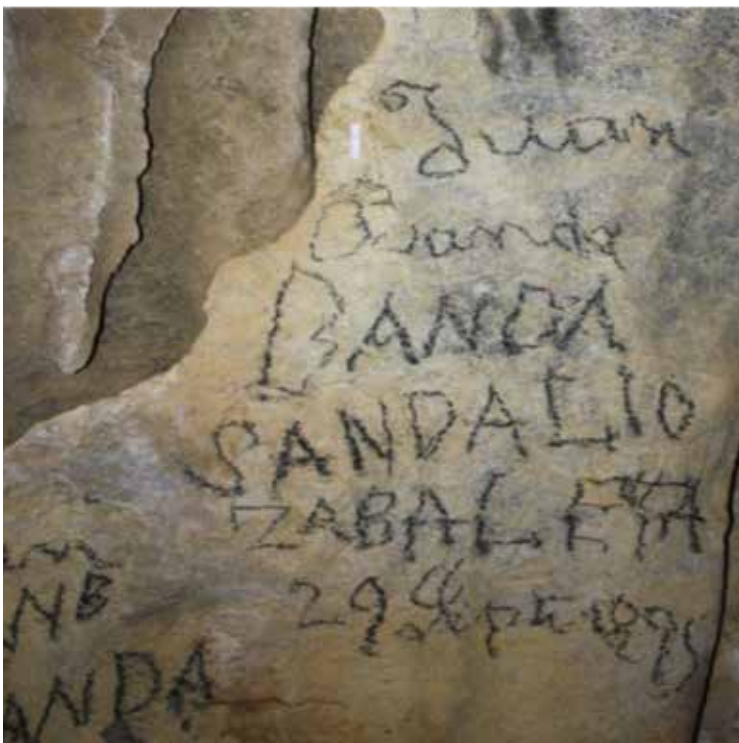 Juan
Banda
BANDA
SANDALIO
ZABALETA
29 Sept
NB
ANDA